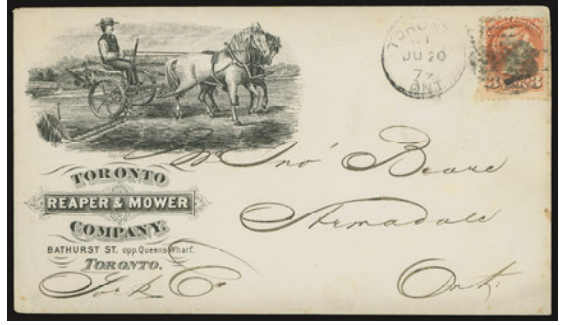 TORONTO
JU 20
77
ONT
3 3
TORONTO
REAPER & MOWER
COMPANY.
BATHURST ST. opp. Queens Wharf.
TORONTO.
Mr Jno' Beare
Armadale
York Co
Ont.